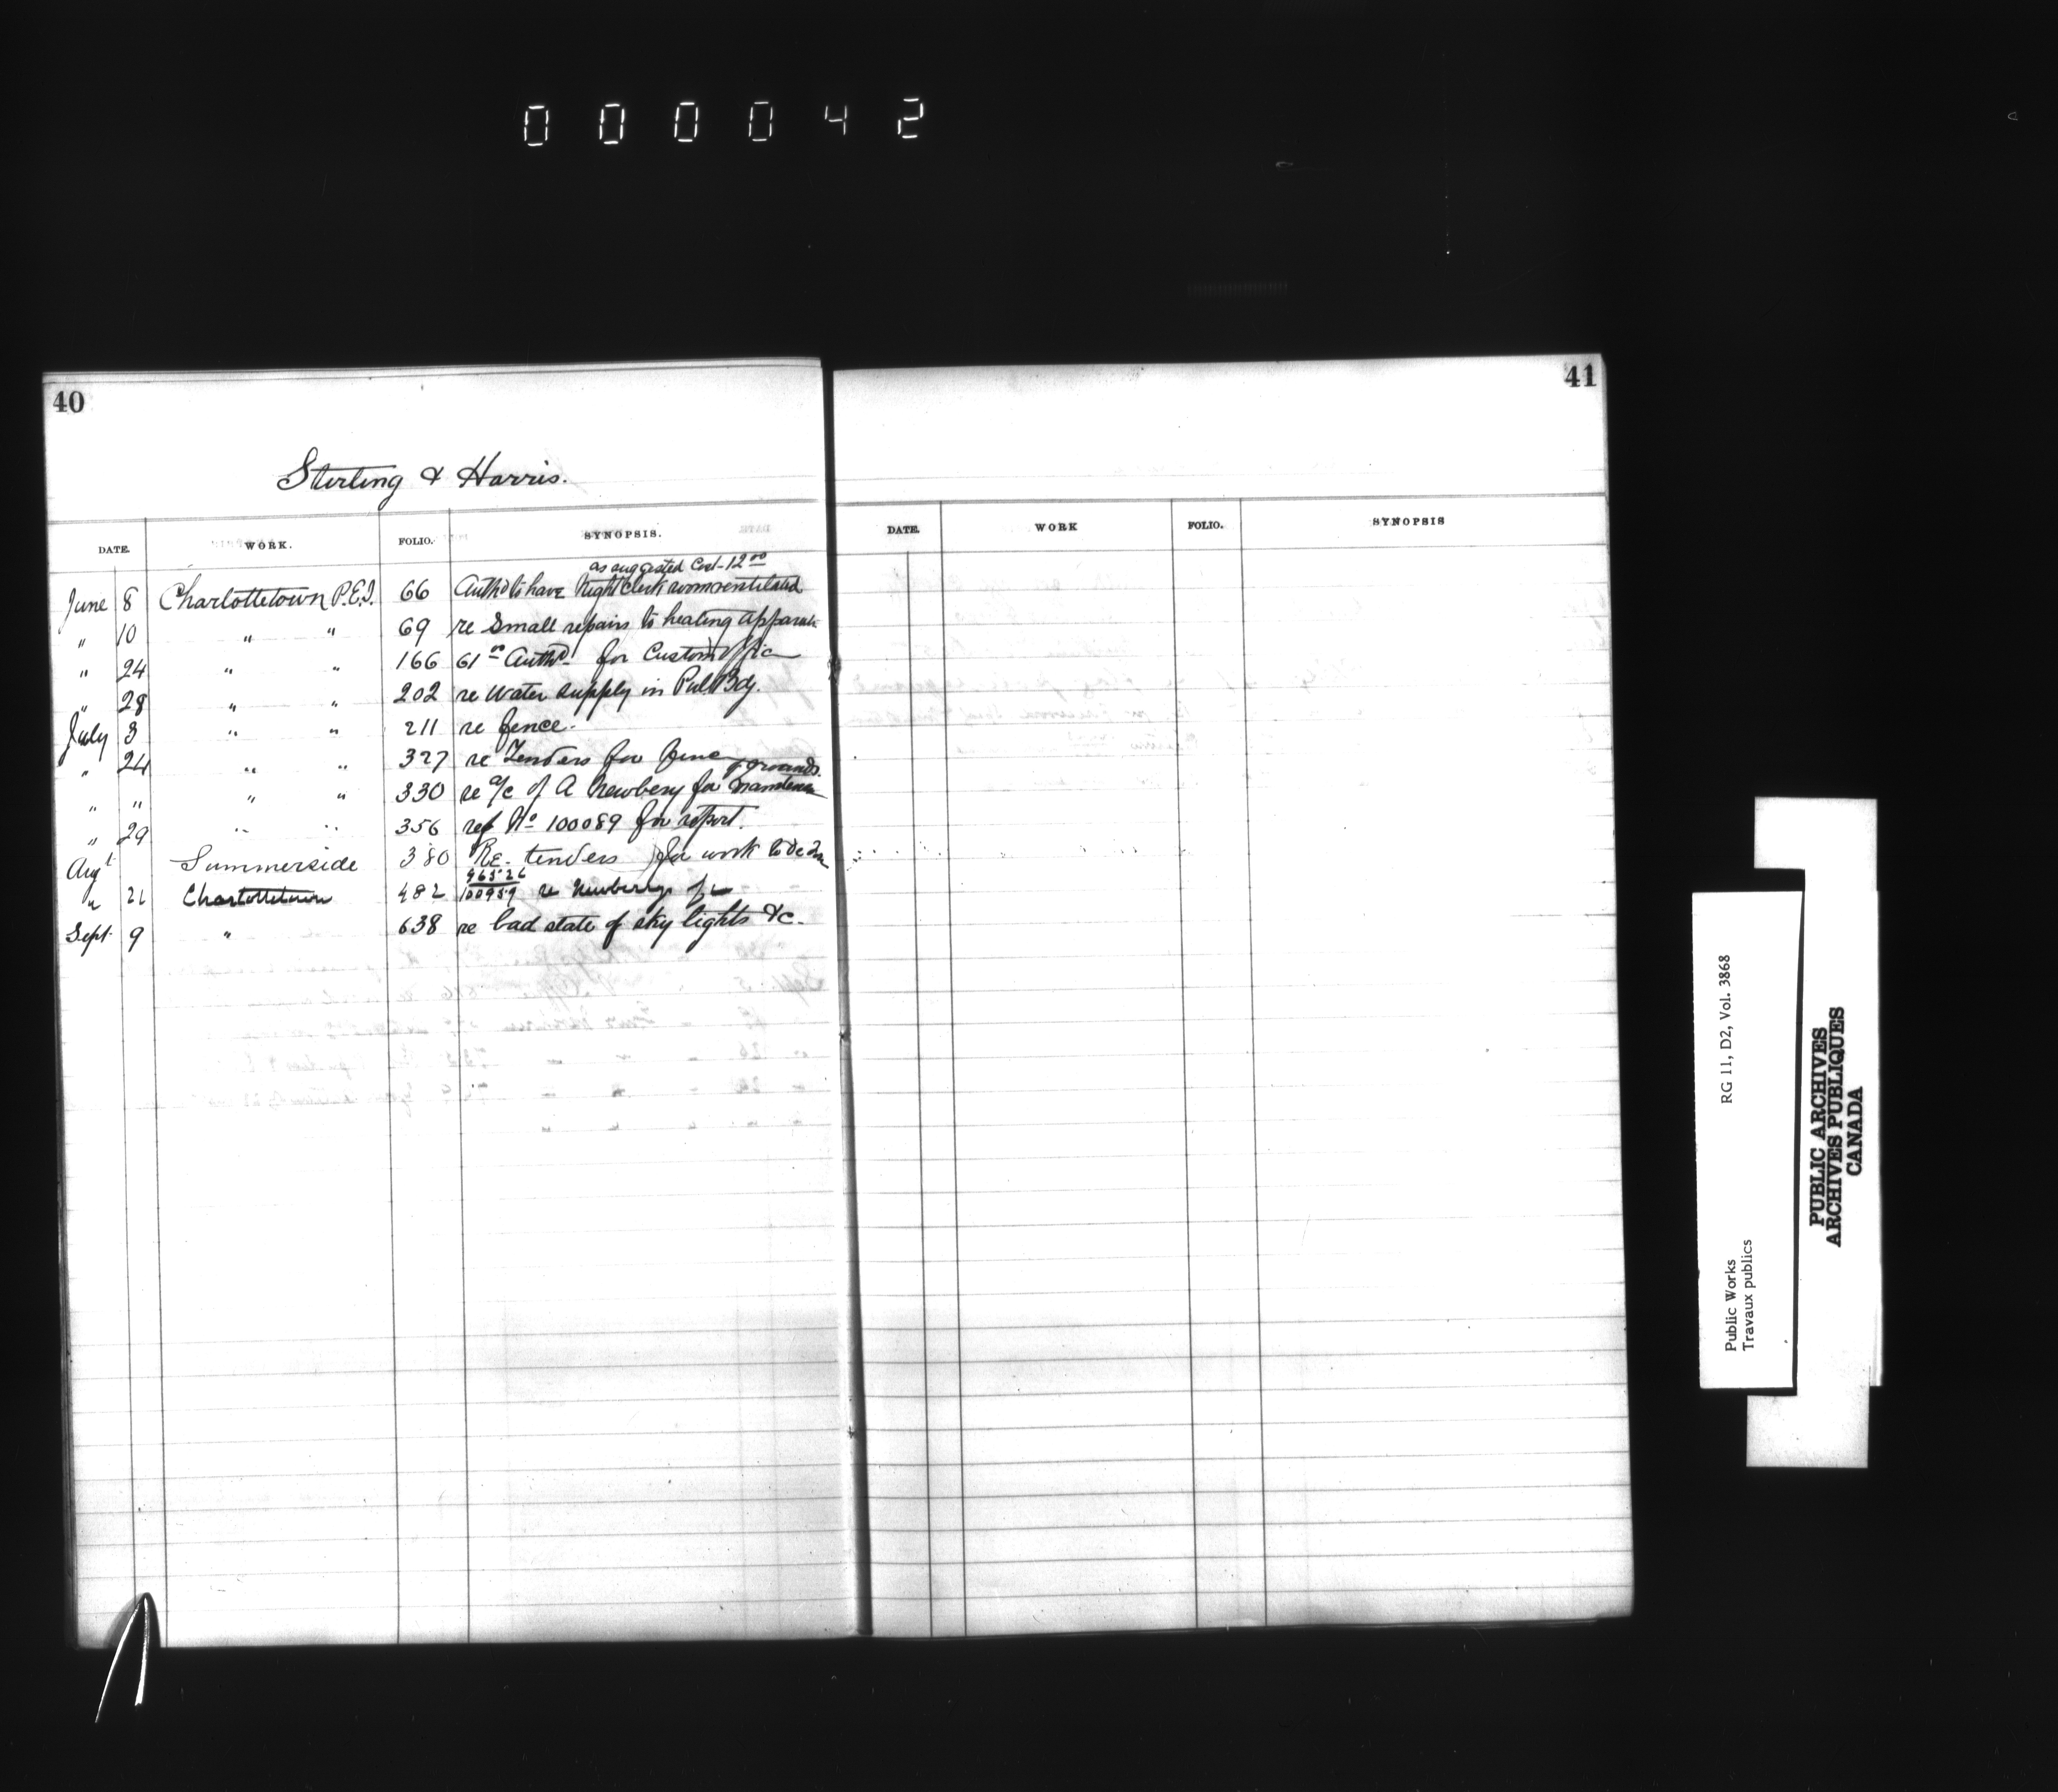 000042
40
Sterling & Harris.
DATE. WORK. FOLIO. SYNOPSIS.
as suggested Cost 12 00
June 8 Charlottetown P.E.I. 66 Authd to have Night Clerk room ventilated
" 10 " " 69 re Small repairs to heating apparat
" 24 " " 166 61 00 Authd for Custom Office
" 28 " " 202 re water supply in Pub. Bdg.
July 3 " " 211 re fence.
" 24 " " 327 re Tenders for fence
grounds.
" " " " 330 re a/c of A Newbery for
" 29 " " 356 ref No 100089 for report.
Augt Summerside 380 Re. tenders for work to be
96526
" 21 Charlottetown 482 100959 re Newbery
Sept 9 " 638 re bad state of sky lights &c.
41
DATE. WORK FOLIO. SYNOPSIS
Public Works RG 11, D2, Vol. 3868
Travaux publics
PUBLIC ARCHIVES
ARCHIVES PUBLIQUES
CANADA